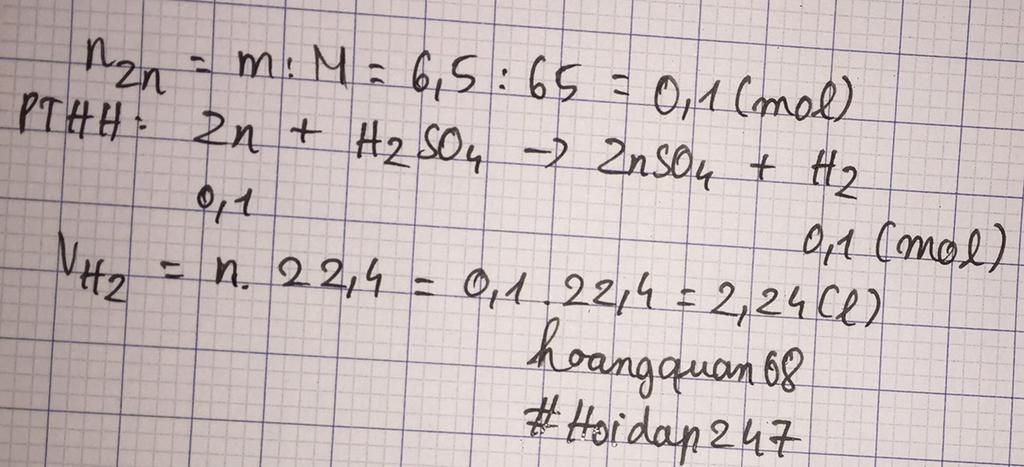 nZn = m : M = 6,5 : 65 = 0,1 (mol)
PTHH: Zn + H2SO4 -> ZnSO4 + H2
0,1 0,1 (mol)
VH2 = n. 22,4 = 0,1 . 22,4 = 2,24 (l)
hoangquan68
#Hoidap247